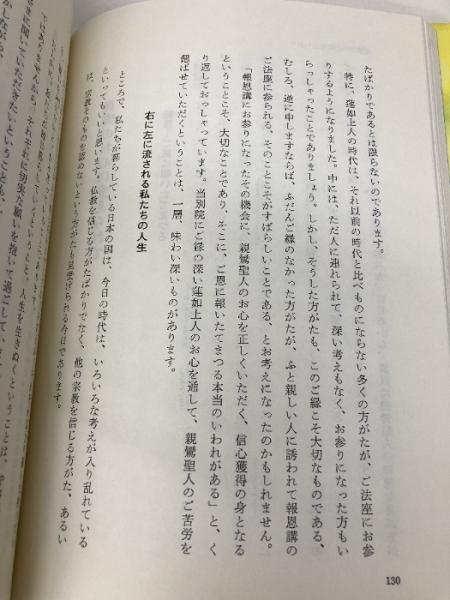 たばかりであるとは限らないのであります。
特に、蓮如上人の時代は、それ以前の時代と比べものにならない多くの方がたが、ご法座にお参
りするようになりました。中には、ただ人に連れられて、深い考えもなく、お参りになった方もい
らっしゃったことでありましょう。しかし、そうした方がたも、このご縁こそ大切なものである、
むしろ、逆に申しますならば、ふだんご縁のなかった方がたが、ふと親しい人に誘われて報恩講の
ご法座に参られる、そのことこそがすばらしいことである、とお考えになったのかもしれません。
「報恩講にお参りになったその機会に、親鸞聖人のお心を正しくいただく、信心獲得の身となる
ということこそ、大切なことであり、そこに、ご恩に報いたてまつる本当のいわれがある」と、く
り返しておっしゃっています。当別院にご縁の深い蓮如上人のお心を通して、親鸞聖人のご苦労を
偲ばせていただくということは、一層、味わい深いものがあります。
右に左に流される私たちの人生
ところで、私たちが暮らしている日本の国は、今日の時代は、いろいろな考えが入り乱れている
といってもいいと思います。仏教を信じる方がたばかりでなく、他の宗教を信じる方がた、あるい
は、宗教そのものを認めないという方がたも見受けられる今日であります。
130